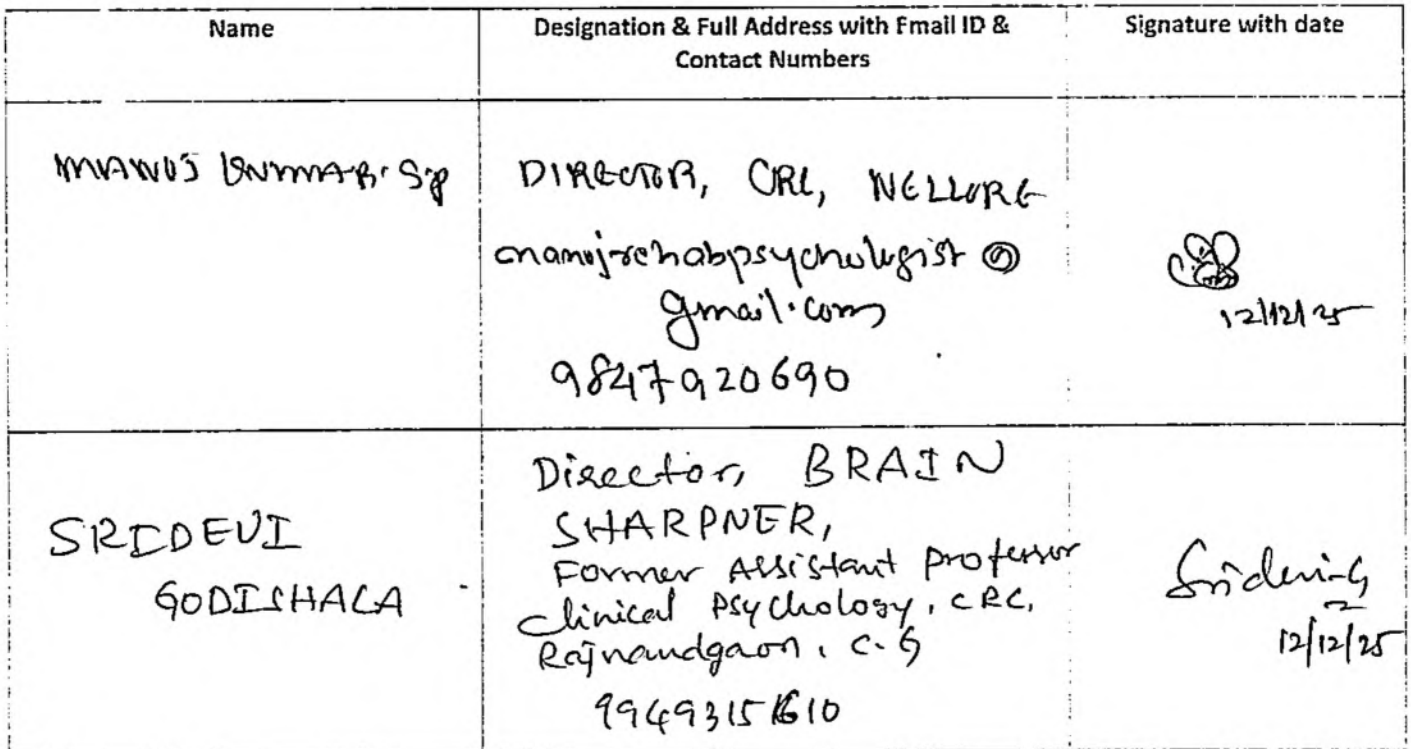 Name
Designation & Full Address with Fmail ID &
Contact Numbers
Signature with date
MANOJ KUMAR. SP
DIRECTOR, CRC, NELLORE
manojrehabpsychologist @
gmail.com
9847920690
12/12/25
SRIDEVI
GODISHALA
Director, BRAIN
SHARPNER,
Former Assistant professor
clinical Psychology, CRC,
Rajnandgaon, C.G
Sridevi.G
12/12/25